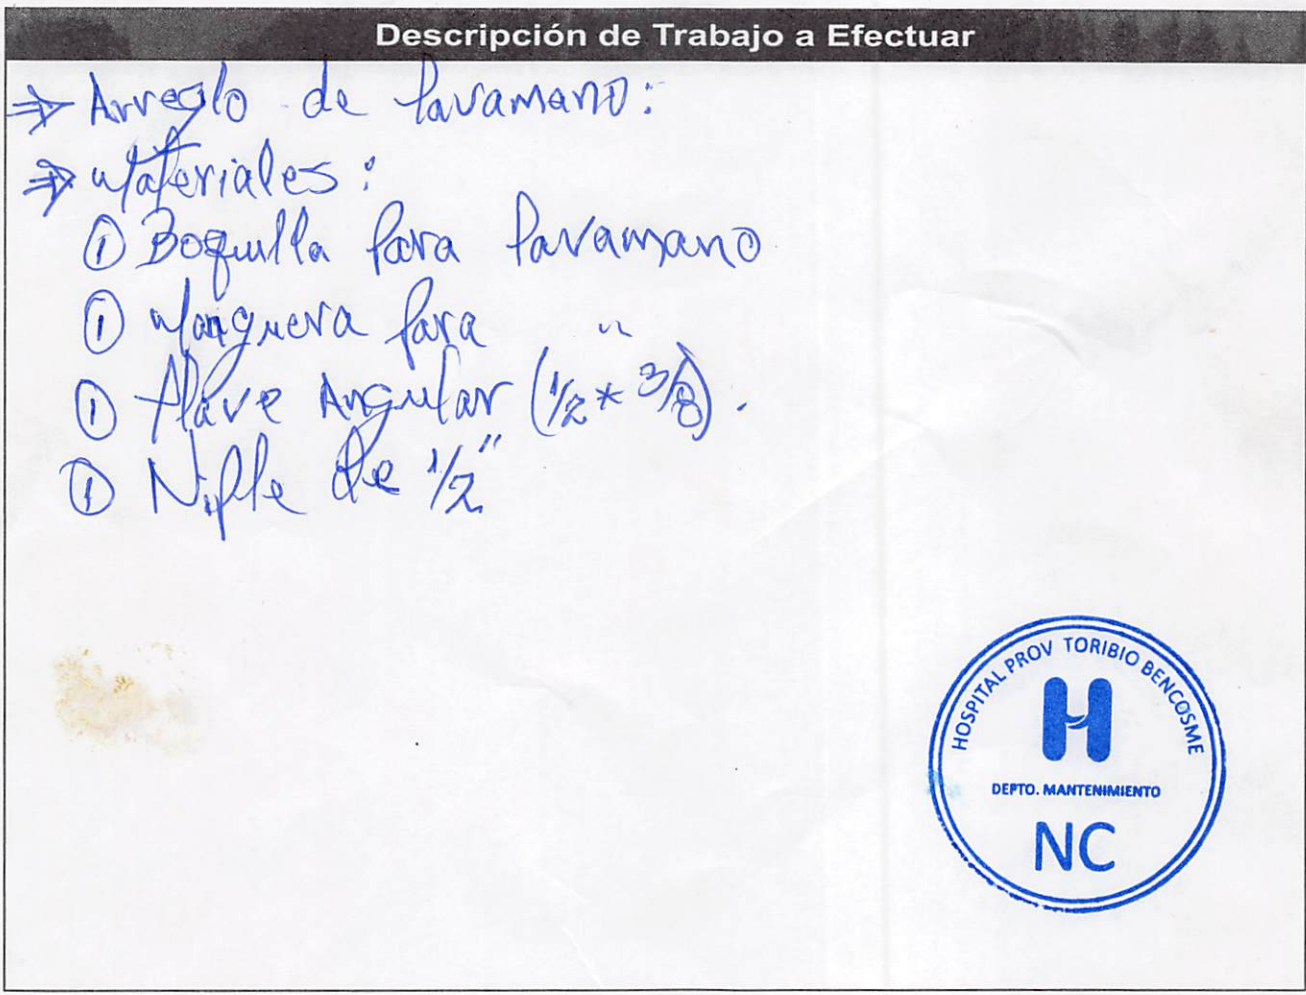 Descripción de Trabajo a Efectuar
⇒ Arreglo de lavamano:
⇒ Materiales:
① Boquilla para lavamano
① Manguera para "
① Llave Angular (1/2 * 3/8).
① Niple de 1/2"
HOSPITAL PROV TORIBIO BENCOSME
H
DEPTO. MANTENIMIENTO
NC